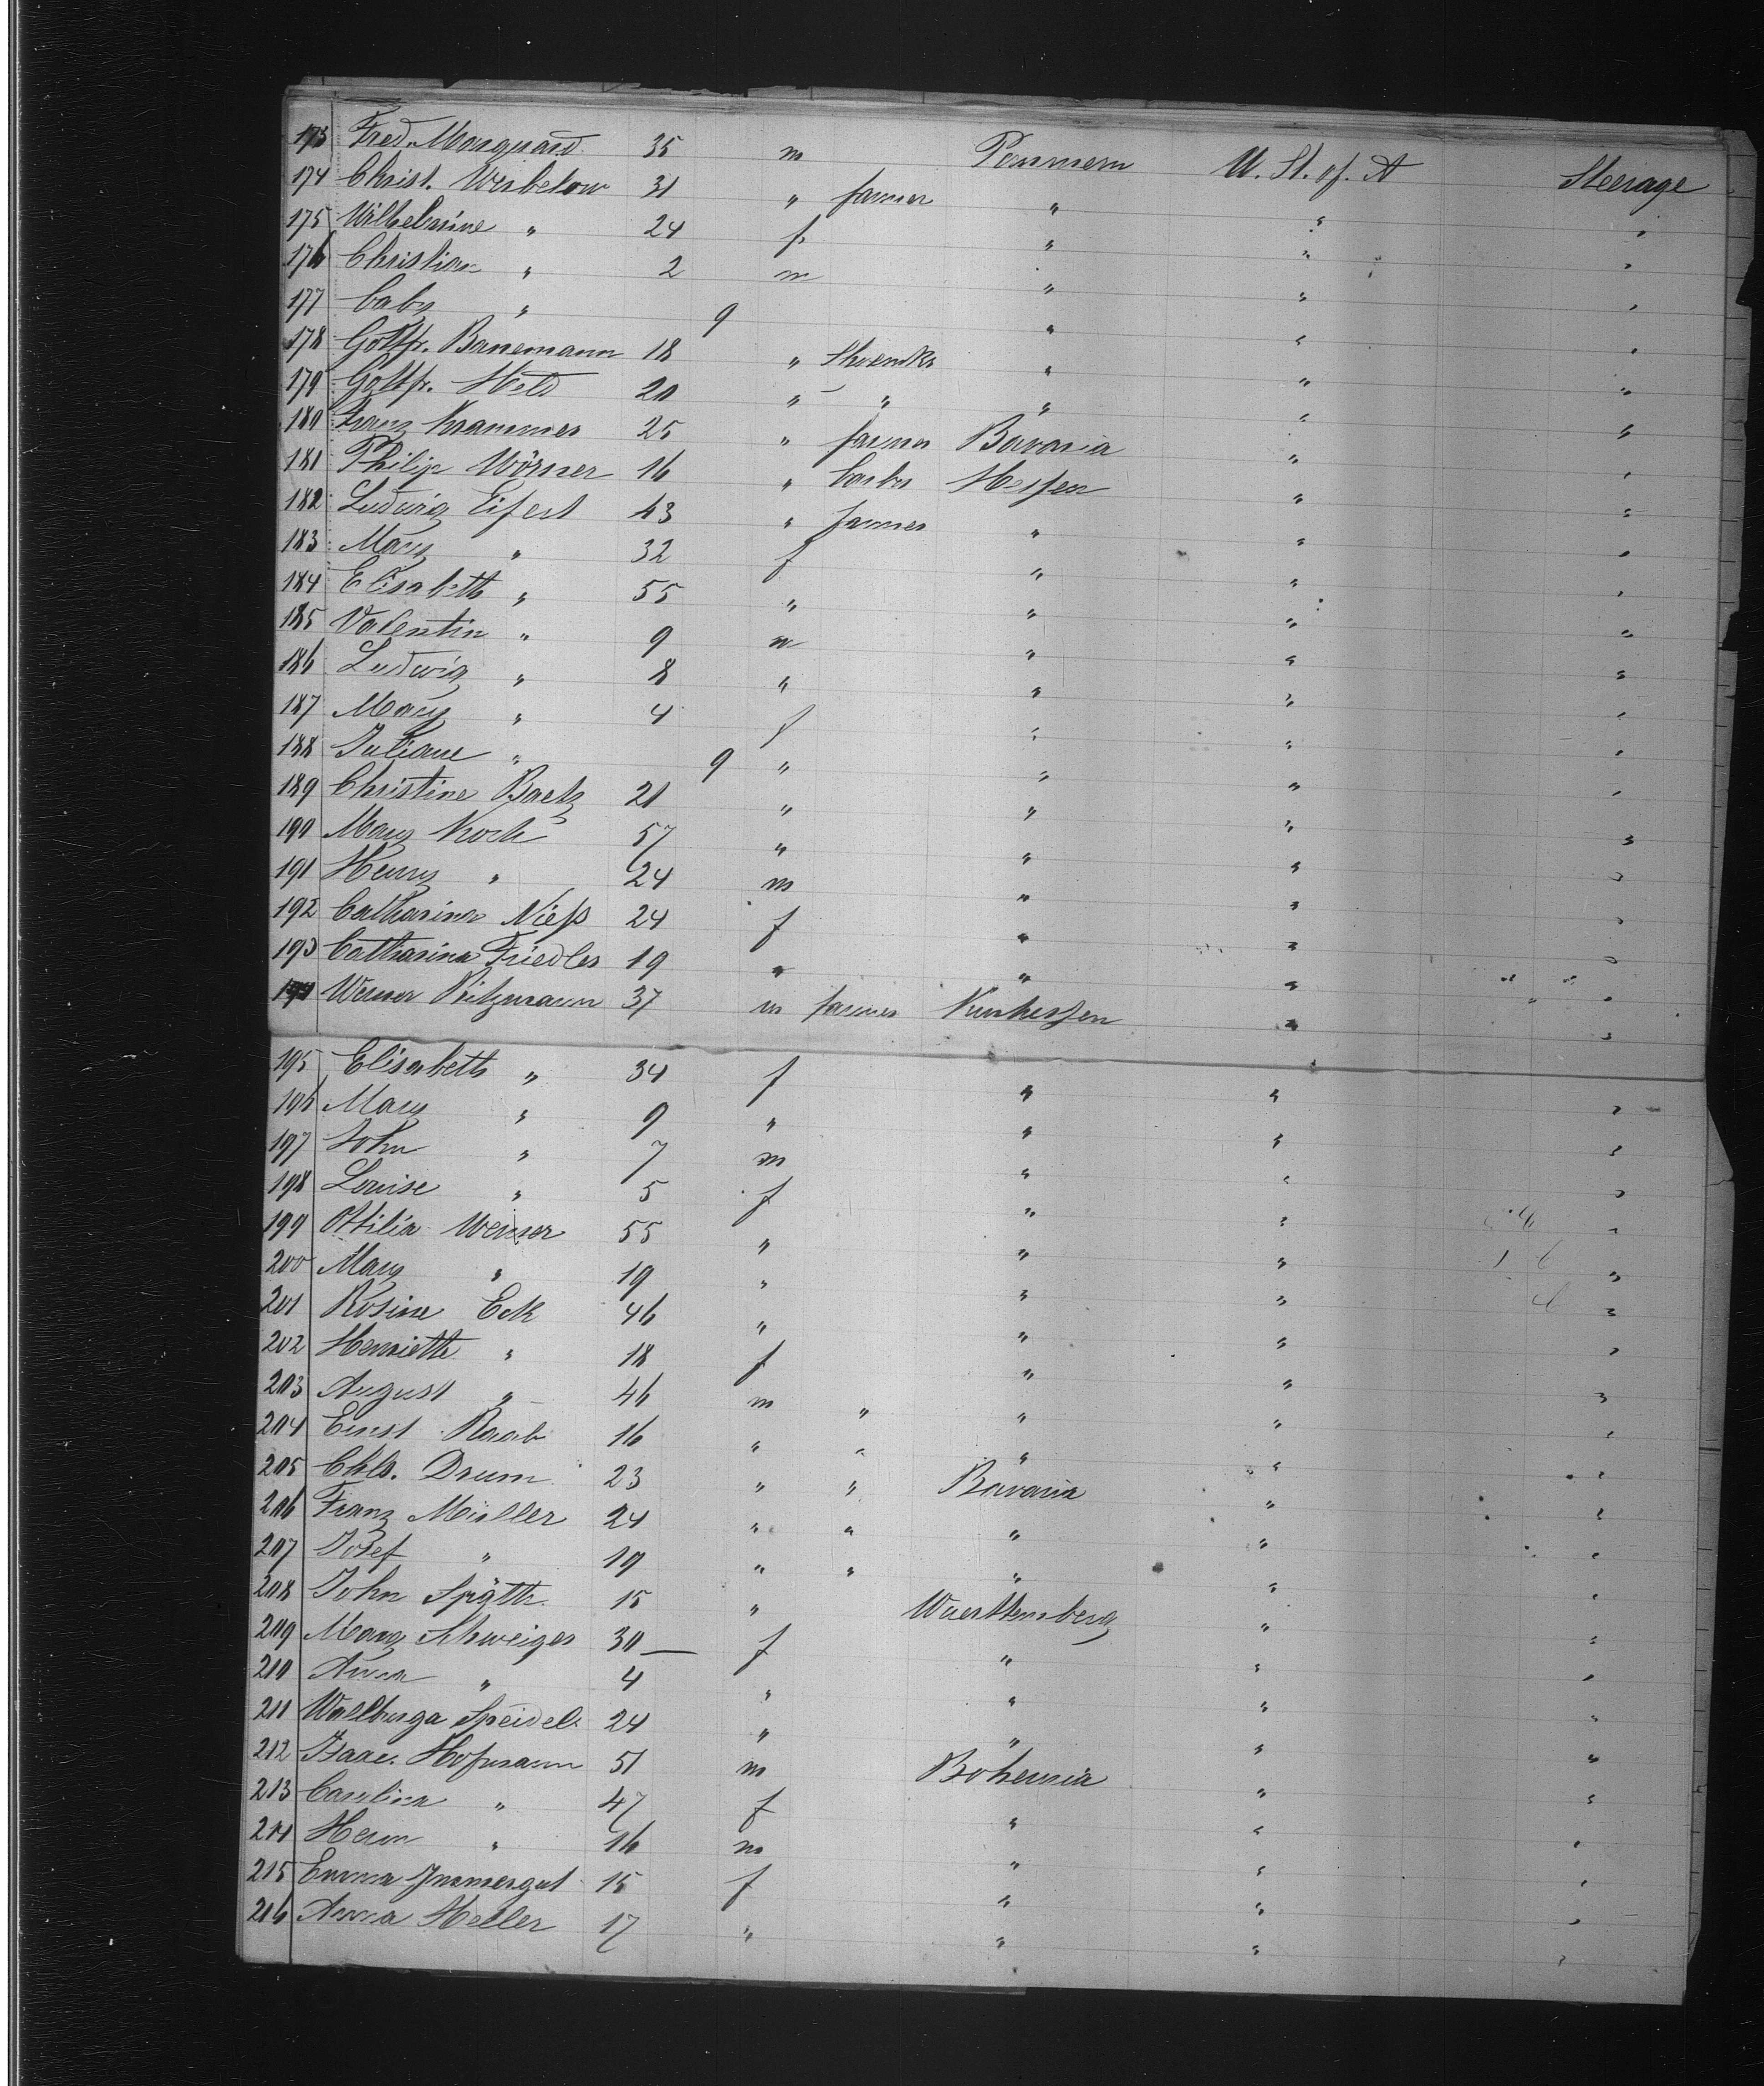 173 Fred. Marquard 35 m Pommern U. St. of. A Steerage
174 Christ. Werbelow 31 " farmer " " "
175 Wilhelmine " 24 f " " "
176 Christian " 2 m " " "
177 baby " 9 " " "
178 Gottfr. Banemann 18 " Shoemkr " " "
179 Gottfr. Held 20 " " " " "
180 Franz Krammer 25 " farmer Bavaria " "
181 Philip Wörner 16 " barber Hessen " "
182 Ludwig Eifert 43 " farmer " " "
183 Mary " 32 f " " "
184 Elisabeth " 55 " " " "
185 Valentin " 9 m " " "
186 Ludwig " 8 " " " "
187 Mary " 4 f " " "
188 Juliane " 9 " " " "
189 Christine Baetz 21 " " " "
190 Mary Koch 57 " " " "
191 Henry " 24 m " " "
192 Catharina Niess 24 f " " "
193 Catharina Friedler 19 " " " "
194 Werner Ritzmann 37 m farmer Kurhessen " "
195 Elisabeth " 34 f " " "
196 Mary " 9 " " " "
197 John " 7 m " " "
198 Louise " 5 f " " "
199 Ottilia Werner 55 " " " "
200 Mary " 19 " " " "
201 Rosine Eck 46 " " " "
202 Henriette " 18 f " " "
203 August " 46 m " " " "
204 Ernst Raab 16 " " " " "
205 Chls. Drum 23 " " Bavaria " "
206 Franz Müller 24 " " " " "
207 Josef " 19 " " " " "
208 John Späth 15 " Wuerttemberg " "
209 Mary Schweiger 30 f " " "
210 Anna " 4 " " " "
211 Wallburga Speidel 24 " " " "
212 Isaac Hofmann 51 m Bohemia " "
213 Carolina " 47 f " " "
214 Herm " 16 m " " "
215 Emma Immergut 15 f " " "
216 Anna Heller 17 " " " "